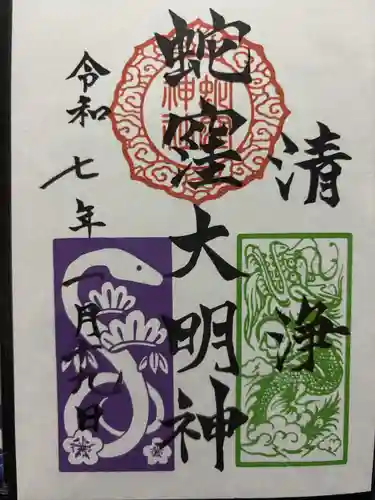 清浄
蛇窪大明神
蛇窪神社
令和七年
一月十九日